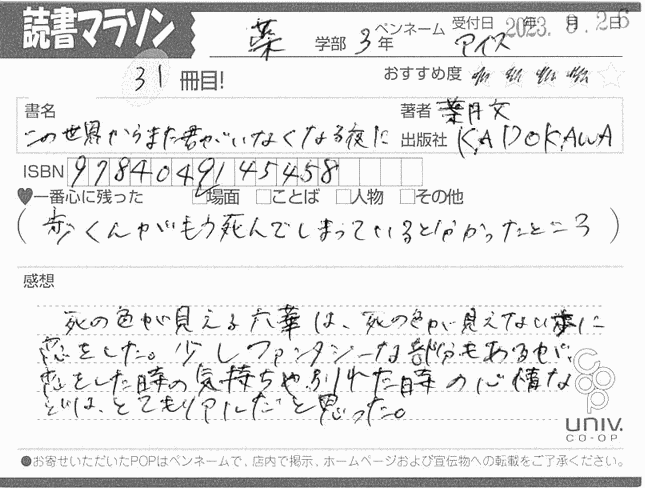 読書マラソン
薬 学部 3年 ペンネーム アイス 受付日 2023.9.26 年 月 日
31 冊目! おすすめ度
書名 この世界からまた君がいなくなる夜に
著者 葉月文
出版社 KADOKAWA
ISBN 9784049145458
♥一番心に残った ☑場面 □ことば □人物 □その他
(歩くんがもう死んでしまっていると分かったところ)
感想
死の色が見える六華は、死の色が見えない歩に
恋をした。少しファンタジーな部分もあるが、
恋をした時の気持ちや別れた時の心情な
どは、とてもリアルだと思った。
co-op
UNIV.
CO-OP
●お寄せいただいたPOPはペンネームで、店内で掲示、ホームページおよび宣伝物への転載をご了承ください。